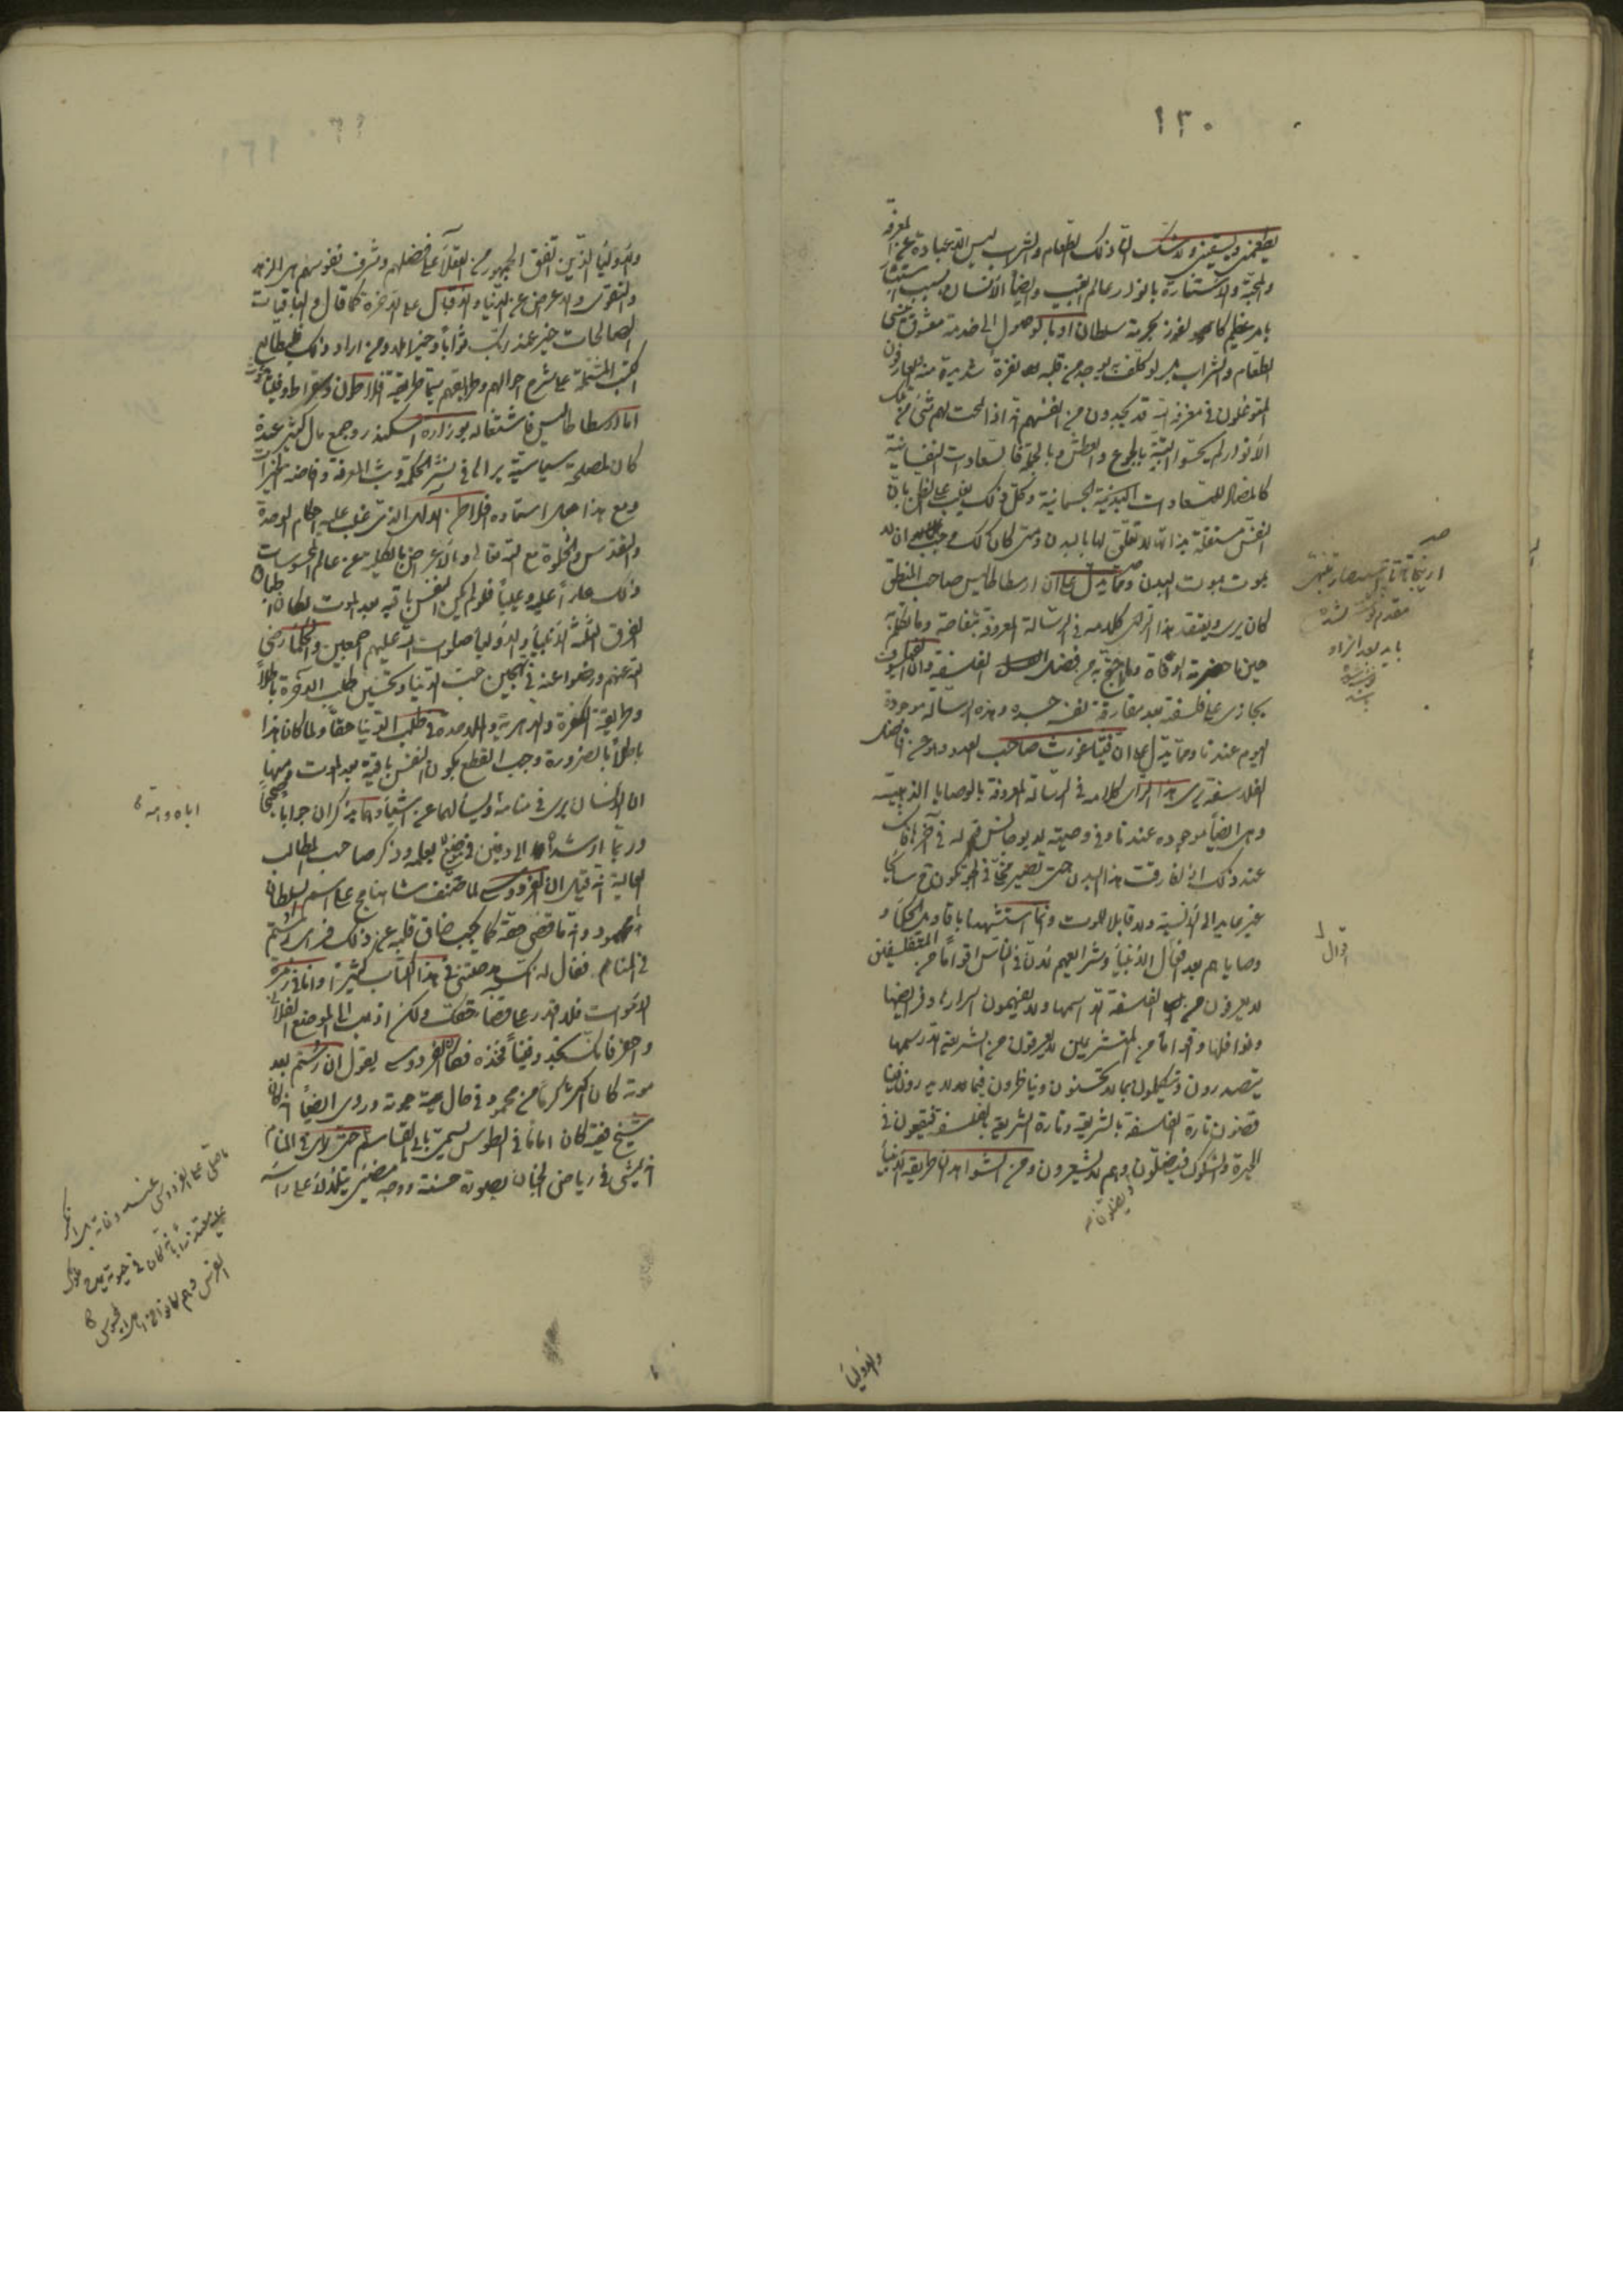 ١٣٠
يطعمني ويسقيني ولا شك ان ذلك الطعام والشراب ليس الا عبادة عن المعرفة
والمحبة والاستنارة بانوار عالم الغيب وايضا الانسان بسبب
بامر عظيم كالفوز بخدمة سلطان او بالوصول الى خدمة معشوق ينسى
الطعام والشراب بل لو كلف به يوجد من قلبه نفرة شديدة منه والعارفون
المتوغلون في معرفة الله قد يجدون من انفسهم انه اذا لاحت لهم شيء من تلك
الانوار لم يحسوا البتة بالجوع والعطش وبالجملة فالسعادات النفسانية
كالمضاد للسعادات البدنية الجسمانية وكل ذلك يغلب على الظن بان
النفس مستقلة بذاتها لا تعلق لها بالبدن ومتى كان كذلك وجب ان لا
يموت بموت البدن ومما يدل على ان ارسطاطاليس صاحب المنطق
كان يرى ويعتقد هذا الراي كلامه في الرسالة المعروفة بتفاحة وما تكلم به
حين ما حضرته الوفاة وما احتج به من فضل الفلسفة وان الفيلسوف
يجازى على فلسفته بعد مفارقة نفسه جسده وهذه الرسالة موجودة
اليوم عندنا ومما يدل على ان فيثاغورث صاحب العدد وهو من افاضل
الفلاسفة يرى هذا الراي كلامه في الرسالة المعروفة بالوصايا الذهبية
وهي ايضا موجوده عندنا وفي وصيته لديوجانس قوله في آخرها فانك
عند ذلك اذا فارقت هذا البدن حتى تصير مخلى في الجو تكون ح سائحا
غير عايد الى الانسية ولا قابلا للموت وانما استشهدنا باقاويل الحكماء و
وصاياهم بعد افعال الانبياء وشرائعهم لان في الناس اقواما من المتفلسفين
لا يعرفون من الفلسفة الا اسمها ولا يفهمون اسرارها وفرايضها
ونوافلها واقواما من المتشرعين لا يعرفون من الشريعة الا رسمها
يتصدرون ويتكلمون بما لا يحسنون ويناظرون فيما لا يدرون
فتارة الفلسفة بالشريعة وتارة الشريعة بالفلسفة فيقعون في
الحيرة والشكوك فيضلون وهم لا يشعرون ومن الشواهد ان طريقة الانبياء
ويضلون
اقوال
مقدم نوشته شده
بايد بعد از او
نوشته شود
والاولياء
١٣١
والاولياء الذين اتفق الجمهور من العقلاء على فضلهم وشرف نفوسهم هي الزهد
والتقوى والاعراض عن الدنيا والاقبال على الآخرة كما قال والباقيات
الصالحات خير عند ربك ثوابا وخير املا ومن اراد ذلك فليطالع
الكتب المشتملة على شرح احوالهم وطرايقهم سيما طريقة افلاطون وسقراط وفيثاغورث
اما ارسطاطاليس فاشتغاله بوزارة اسكندر وجمع مال كثير عنده
كان لمصلحة سياسية يرى لها في نشر الحكمة وبث المعرفة وافاضة الخيرات
ومع هذا هل استاده افلاطون الالهي الذي غلب عليه احكام الوحدة
والتقدس والخلوة مع الله تعالى والاعراض بالكلية عن عالم المحسوسات
ذلك عارا عليه وعيبا فلو لم يكن النفس باقيه بعد الموت لكان اطباق
الفرق الثلثة الانبياء والاولياء صلوات الله عليهم اجمعين والحكماء رضي
الله عنهم ورضوا عنه في تهجين حب الدنيا وتحسين طلب الآخرة باطلا
وطريقة الكفرة والدهرية والملاحدة في طلب الدنيا حقا ولما كان هذا
باطلا بالضرورة وجب القطع بكون النفس باقية بعد الموت ومنها
ان الانسان يرى في منامه ويسالهما عن اشياء وهما يذكران جوابا صحيحا
وربما ارشداه الى دفين في موضع لا يعلمه وذكر صاحب المطالب
العالية انه قيل ان الفردوسي لما صنف شاهنامج على اسم السلطان
محمود وانه ما قضى حقه كما يجب ضاق قلبه عن ذلك فراى رستم
في المنام فقال له انك مدحتني في هذا الكتاب كثيرا وانا في زمرة
الاموات فلا اقدر على قضاء حقك ولكن اذهب الى الموضع الفلاني
واحفر فانك تجد دفينا فخذه فكان الفردوسي يقول ان رستم بعد
موته كان اكثر كرما من محمود في حال حيوته وروي ايضا انه كان
شيخ فقيه كان اماما في الطوس يسمى بابي القاسم حتى راى في المنام
انه يمشي في رياض الجنان بصورة حسنة ووجه مضيء يتلألأ على راسه
اباه وامه
ما صلى على الفردوسي عند وفاته بل انكر
عليه معتذرا بانه كان في حيوته يمدح ملوك
الفرس وهم كانوا من اهل المجوس